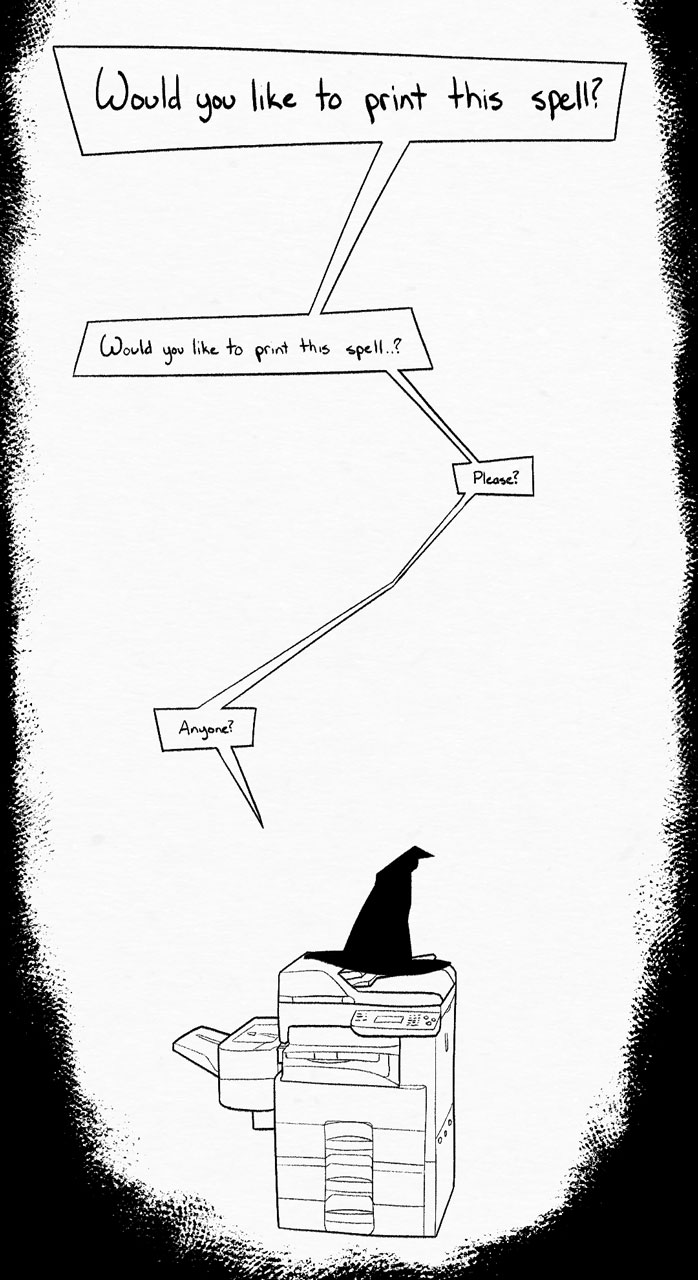 Would you like to print this spell?
Would you like to print this spell..?
Please?
Anyone?